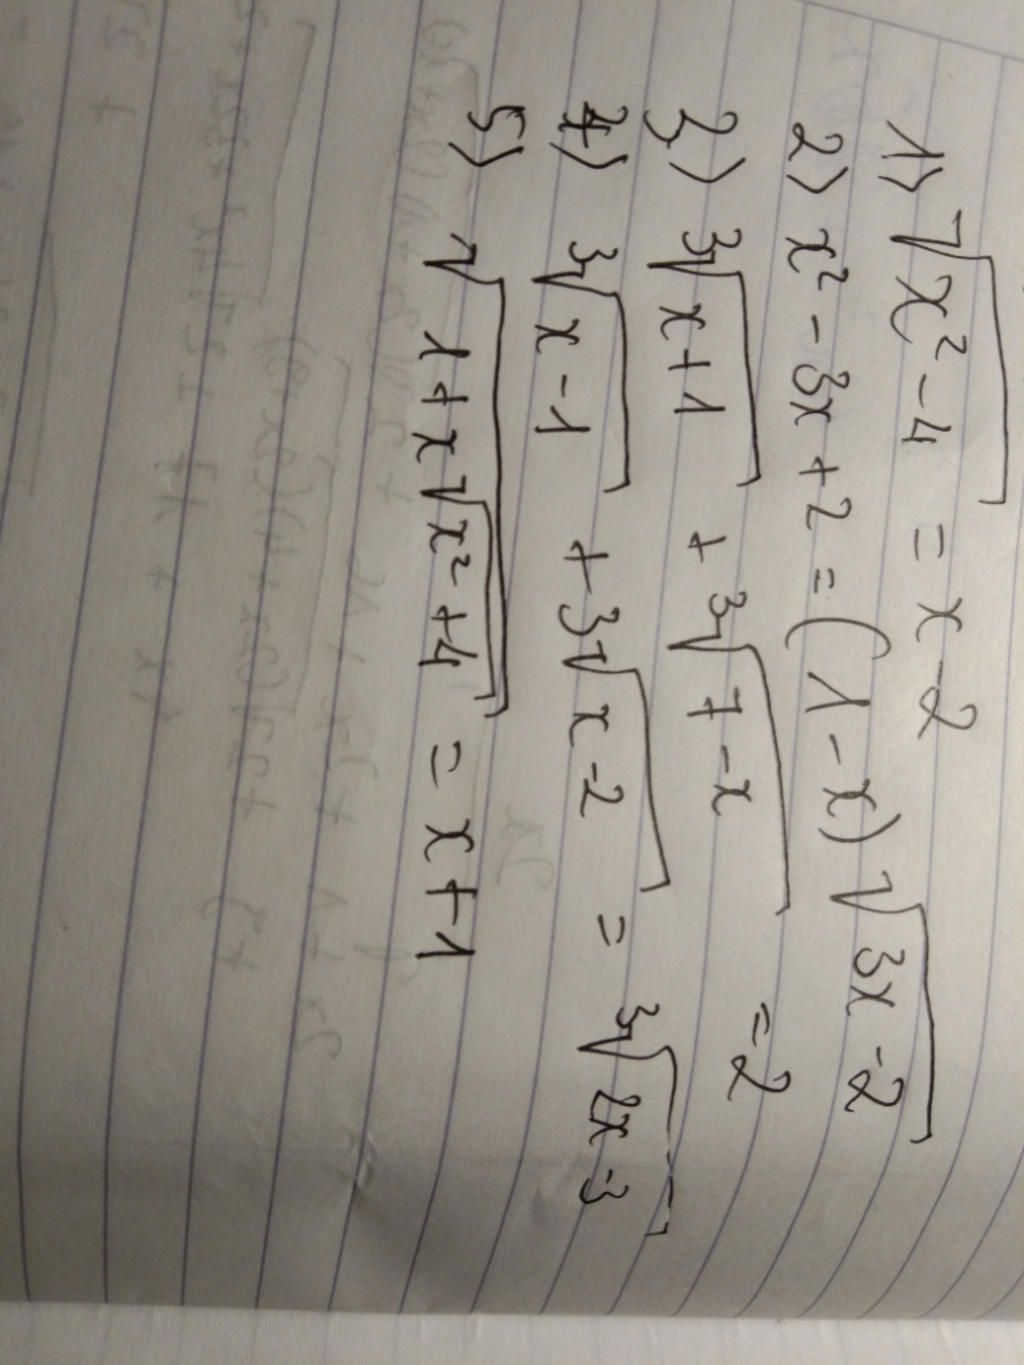 1) √(x² - 4) = x - 2
2) x² - 3x + 2 = (1 - x) √(3x - 2)
3) ³√(x + 1) + ³√(7 - x) = 2
4) ³√(x - 1) + ³√(x - 2) = ³√(2x - 3)
5) √(1 + x√(x² + 4)) = x + 1